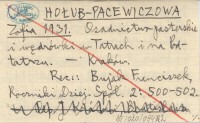 HOŁUB-PACEWICZOWA
Zofia 1931. Osadnictwo pasterskie
i wędrówki w Tatrach i na Pod-
tatrzu. — Kraków.
Rec.: Bujak Franciszek,
Roczniki Dziej. Społ. 2: 500-502.